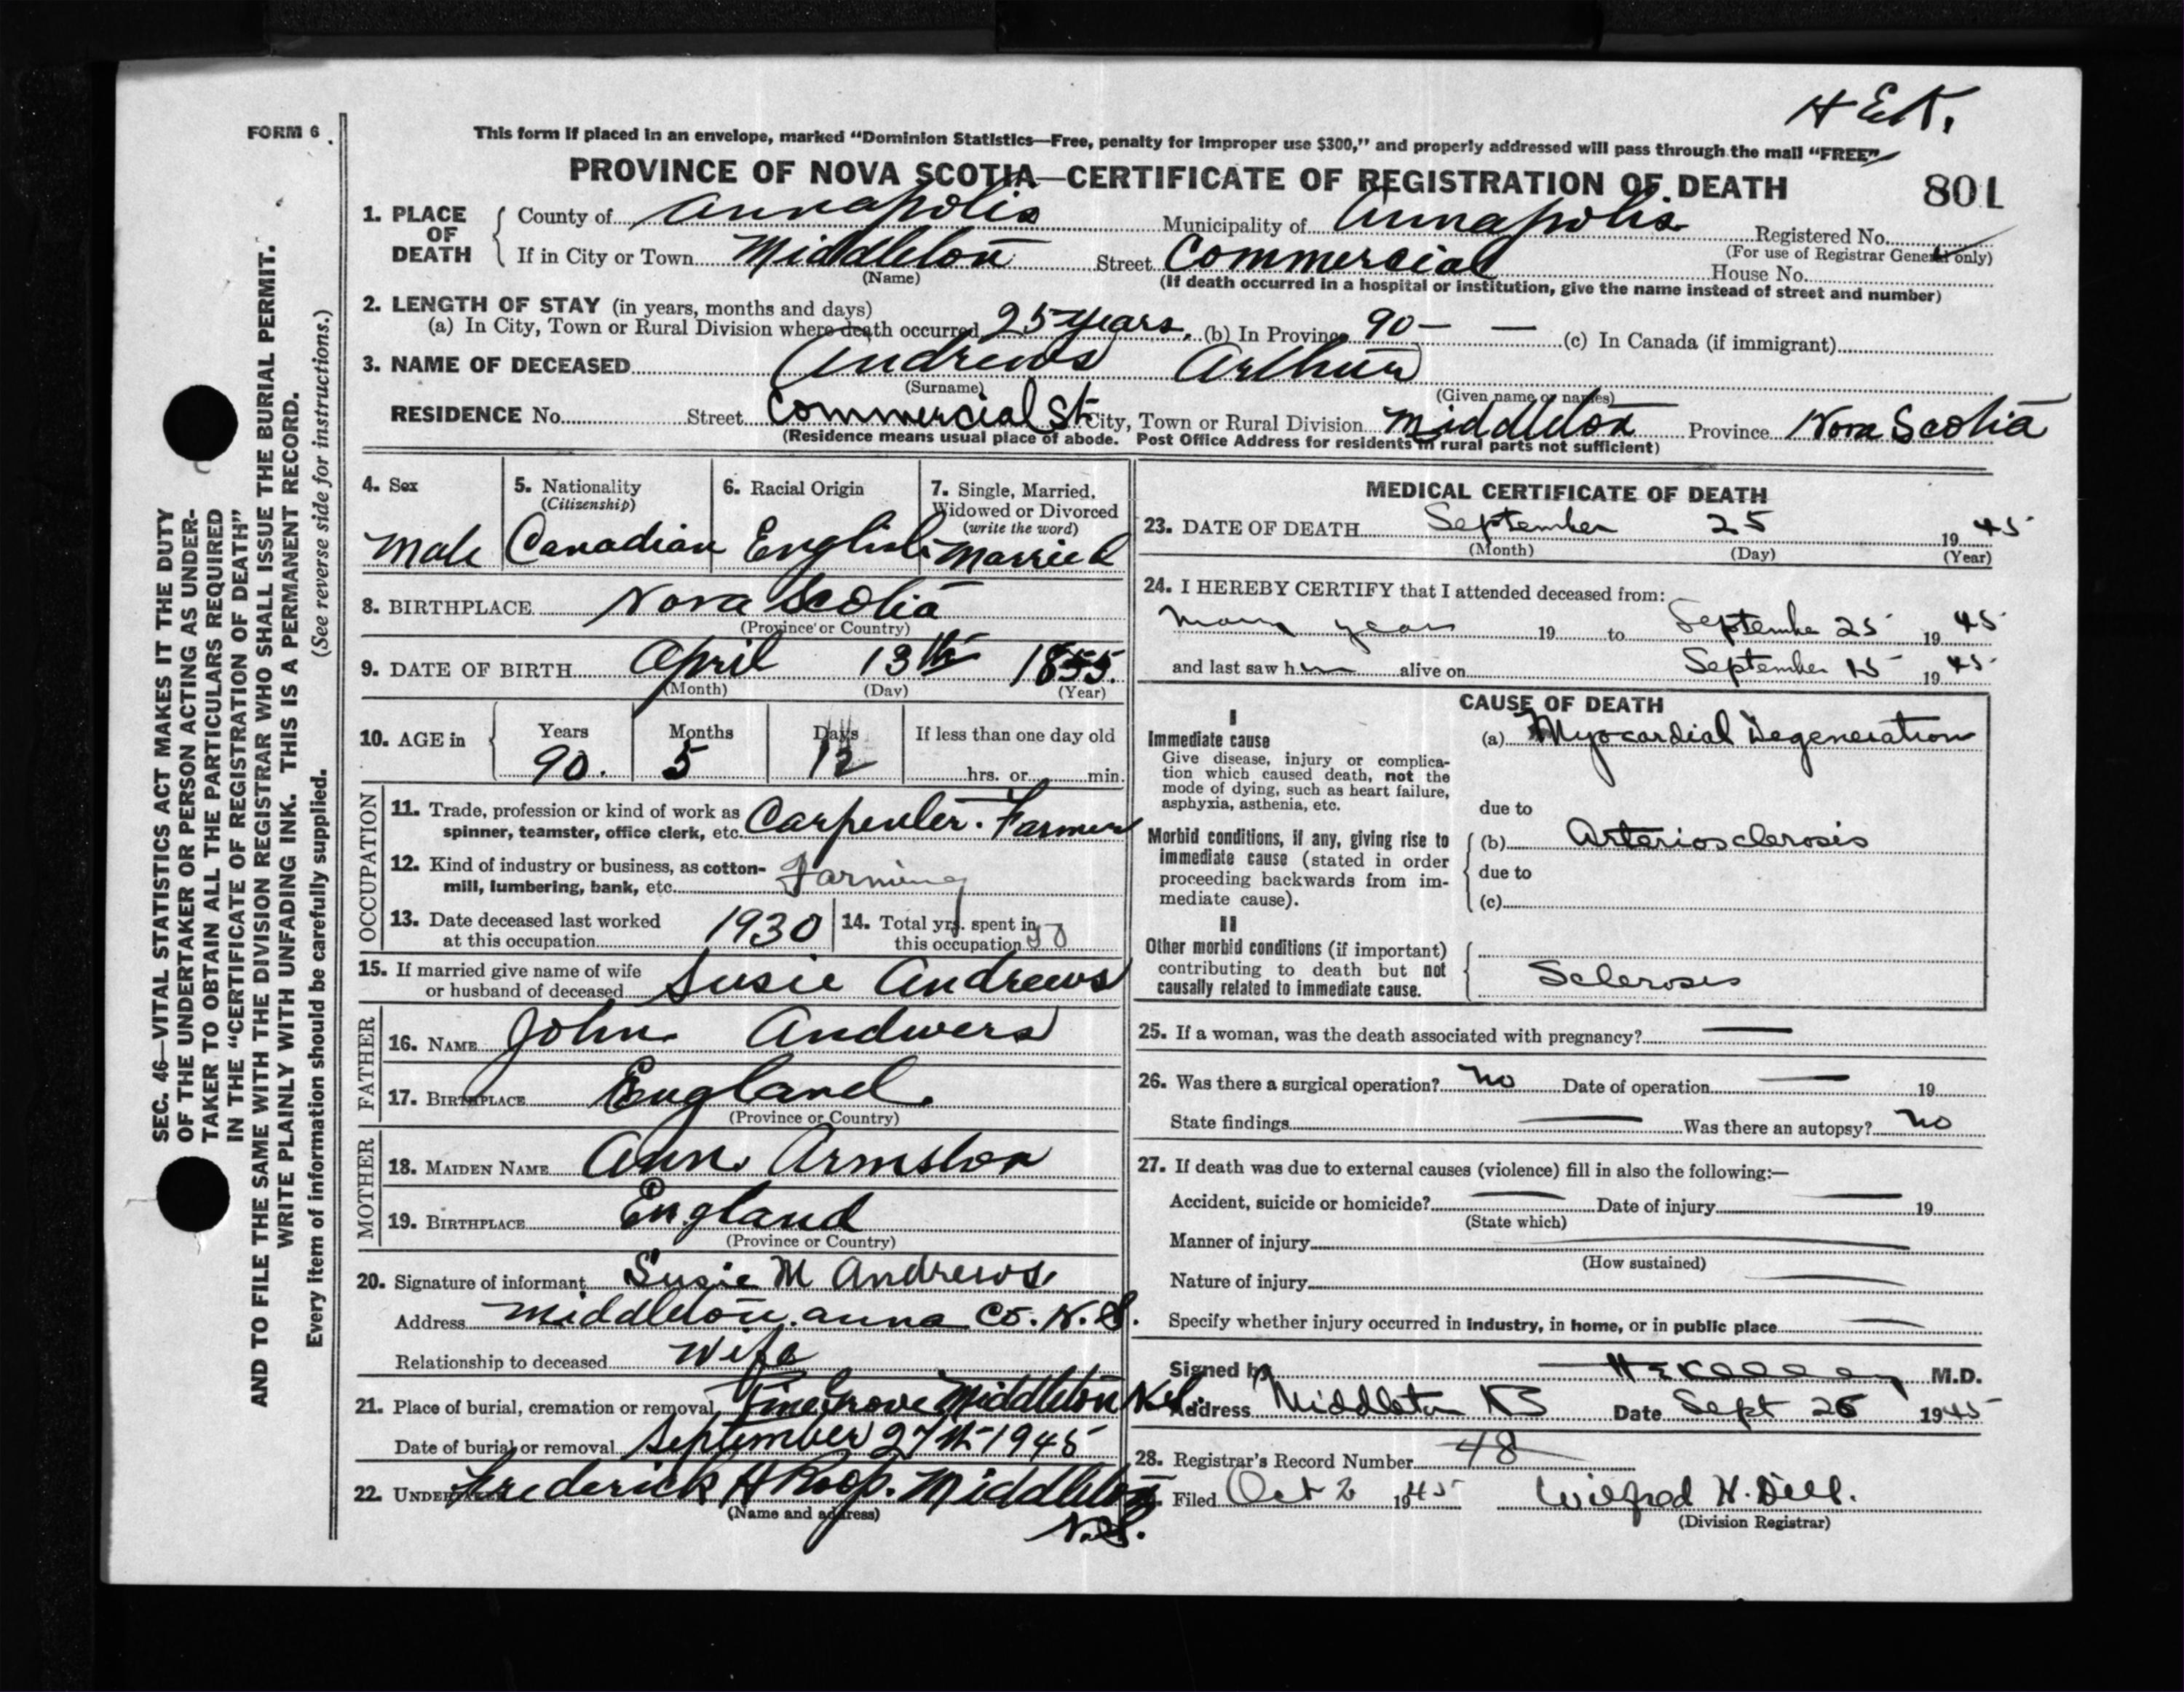 H E K.
FORM 6
This form if placed in an envelope, marked "Dominion Statistics—Free, penalty for improper use $300," and properly addressed will pass through the mail "FREE"
PROVINCE OF NOVA SCOTIA—CERTIFICATE OF REGISTRATION OF DEATH 801
1. PLACE OF DEATH County of Annapolis Municipality of Annapolis Registered No.
(For use of Registrar General only)
If in City or Town Middleton Street Commercial House No.
(Name) (If death occurred in a hospital or institution, give the name instead of street and number)
2. LENGTH OF STAY (in years, months and days)
(a) In City, Town or Rural Division where death occurred 25 years. (b) In Province 90 — — (c) In Canada (if immigrant)
3. NAME OF DECEASED Andrews Arthur
(Surname) (Given name or names)
RESIDENCE No. Street Commercial St. City, Town or Rural Division Middleton Province Nova Scotia
(Residence means usual place of abode. Post Office Address for residents in rural parts not sufficient)
4. Sex Male
5. Nationality (Citizenship) Canadian
6. Racial Origin English
7. Single, Married, Widowed or Divorced (write the word) Married
8. BIRTHPLACE Nova Scotia
(Province or Country)
9. DATE OF BIRTH April 13th 1855.
(Month) (Day) (Year)
10. AGE in Years 90. Months 5 Days 12 If less than one day old hrs. or min.
OCCUPATION
11. Trade, profession or kind of work as spinner, teamster, office clerk, etc. Carpenter. Farmer
12. Kind of industry or business, as cotton-mill, lumbering, bank, etc. Farming
13. Date deceased last worked at this occupation 1930
14. Total yrs. spent in this occupation
15. If married give name of wife or husband of deceased Susie Andrews
FATHER
16. NAME John Andwers
17. BIRTHPLACE England.
(Province or Country)
MOTHER
18. MAIDEN NAME Ann Armston
19. BIRTHPLACE England
(Province or Country)
20. Signature of informant Susie M Andrews.
Address Middleton. Anna Co. N.S.
Relationship to deceased Wife
21. Place of burial, cremation or removal Pine Grove Middleton N.S.
Date of burial or removal September 27th 1945
22. UNDERTAKER Frederick H Roop. Middleton
N.S.
(Name and address)
MEDICAL CERTIFICATE OF DEATH
23. DATE OF DEATH September 25 1945
(Month) (Day) (Year)
24. I HEREBY CERTIFY that I attended deceased from:
Many years 19 to September 25 1945
and last saw him alive on September 15 1945
CAUSE OF DEATH
I
Immediate cause
Give disease, injury or complica-
tion which caused death, not the
mode of dying, such as heart failure,
asphyxia, asthenia, etc.
(a) Myocardial Degeneration
due to
Morbid conditions, if any, giving rise to
immediate cause (stated in order
proceeding backwards from im-
mediate cause).
(b) Arteriosclerosis
due to
(c)
II
Other morbid conditions (if important)
contributing to death but not
causally related to immediate cause.
Sclerosis
25. If a woman, was the death associated with pregnancy? —
26. Was there a surgical operation? No Date of operation — 19
State findings — Was there an autopsy? No
27. If death was due to external causes (violence) fill in also the following:—
Accident, suicide or homicide? — Date of injury — 19
(State which)
Manner of injury —
(How sustained)
Nature of injury —
Specify whether injury occurred in industry, in home, or in public place —
Signed by H E Kelley M.D.
Address Middleton NS Date Sept 26 1945
28. Registrar's Record Number 48
Filed Oct 2 1945 Wilfred H. Dill.
(Division Registrar)
SEC. 46—VITAL STATISTICS ACT MAKES IT THE DUTY
OF THE UNDERTAKER OR PERSON ACTING AS UNDER-
TAKER TO OBTAIN ALL THE PARTICULARS REQUIRED
IN THE "CERTIFICATE OF REGISTRATION OF DEATH"
AND TO FILE THE SAME WITH THE DIVISION REGISTRAR WHO SHALL ISSUE THE BURIAL PERMIT.
WRITE PLAINLY WITH UNFADING INK. THIS IS A PERMANENT RECORD.
Every item of information should be carefully supplied. (See reverse side for instructions.)